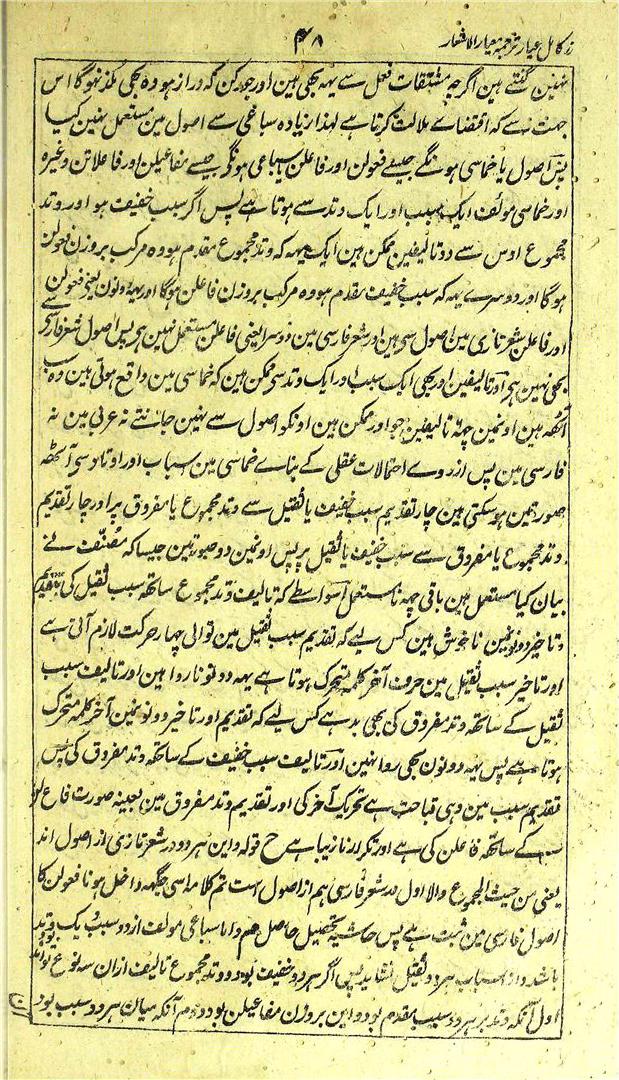 زر کامل عیار ترجمہ معیار الاشعار
۴۸
نہین گنتے ہین اگرچہ مشتقات فعل سے یہہ بھی ہین اور جو رکن کہ دراز ہو وہ بھی لذیذ نہوگا اس
جہت سے کہ اقتضاے ملالت کرتا ہے لہذا زیادہ سباعی سے اصول مین مستعمل نہین کیا
پس اصول یا خماسی ہونگے جیسے فعولن اور فاعلن یا سباعی ہونگے جیسے مفاعیلن اور فاعلاتن وغیرہ
اور خماسی مولف ایک سبب اور ایک وتد سے ہوتا ہے پس اگر سبب خفیف ہو اور وتد
مجموع اوس سے دو تالیفین ممکن ہین ایک یہہ کہ وتد مجموع مقدم ہو وہ مرکب بروزن فعولن
ہوگا اور دوسرے یہہ کہ سبب خفیف مقدم ہو وہ مرکب بروزن فاعلن ہوگا اور یہہ دونون یعنی فعولن
اور فاعلن شعر تازی مین اصول سے ہین اور شعر فارسی مین دوسرا یعنی فاعلن مستعمل نہین ہی پس اصول شعر فارسی سے
بھی نہین ہی اور تالیفین اور بھی ایک سبب اور ایک وتد سی ممکن ہین کہ خماسی مین واقع ہوتی ہین وہ سب
آٹھہ ہین اونمین چھہ تالیفین جو اور ممکن ہین اونکو اصول سے نہین جانتے نہ عربی مین نہ
فارسی مین پس از روے احتمالات عقلی کے بناے خماسی مین اسباب اور اوتاد سی آٹھہ
صورتین ہو سکتی ہین چار تقدیم سبب خفیف یا ثقیل سے وتد مجموع یا مفروق پر اور چار تقدیم
وتد مجموع یا مفروق سے سبب خفیف یا ثقیل پر پس اونمین دو صورتین جیسا کہ مصنف نے
بیان کیا مستعمل ہین باقی چھہ نا مستعمل اسواسطے کہ تالیف وتد مجموع ساتھہ سبب ثقیل کی تقدیم
و تاخیر دونونمین ناخوش ہین کس لیے کہ تقدیم سبب ثقیل مین توالی چہار حرکت لازم آتی ہے
اور تاخیر سبب ثقیل مین حرف آخر کلمہ متحرک ہوتا ہے یہہ دونو ناروا ہین اور تالیف سبب
ثقیل کے ساتھہ وتد مفروق کی بھی بد ہے کس لیے کہ تقدیم اور تاخیر دونونمین آخر کلمہ متحرک
ہوتا ہے پس یہہ دونون بھی روا نہین اور تالیف سبب خفیف کے ساتھہ وتد مفروق کی پس
تقدیم سبب مین وہی قباحت ہے تحریک آخر کی اور تقدیم وتد مفروق مین بعینہ صورت فاع لن
کے ساتھہ فاعلن کی ہے اور تکرار نازیبا ہے ح قولہ و این ہر دو در شعر تازی از اصول اند
یعنی من حیث المجموع والا اول در شعر فارسی ہم از اصول ست تم کلامہ اسی جگہہ داخل ہونا فعولن کا
اصول فارسی مین ثبت ہے پس حاشیہ تحصیل حاصل ہم و اما سباعی مولف از دو سبب و یک وتد
باشد و از اسباب ہر دو ثقیل نشاید پس اگر ہر دو خفیف بود و وتد مجموع تالیف ازان سہ نوع تواند بود
اول آنکہ وتد بر ہر دو سبب مقدم بود و این بروزن مفاعیلن بود دوم آنکہ میان ہر دو سبب بود